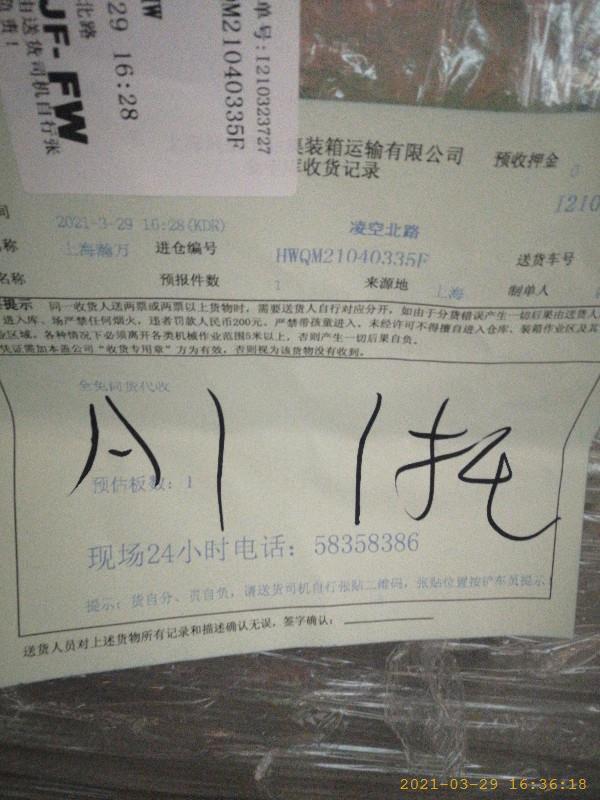 单号:1210323727
QM21040335F
29 16:28
北路
JF-FW
由送货司机自行张
负责！
装箱运输有限公司
收货记录
预收押金 0
1210
2021-3-29 16:28(KDR)
凌空北路
上海瀚万
进仓编号
HWQM21040335F
送货车号
预报件数
1
来源地
上海
制单人
提示 同一收货人送两票或两票以上货物时，需要送货人自行对应分开，如由于分货错误产生一切后果由送货人
进入库、场严禁任何烟火，违者罚款人民币200元。严禁带孩童进入。未经许可不得擅自进入仓库、装箱作业区及其
业区域。各种情况下必须离开各类机械作业范围5米以上，否则产生一切后果自负。
凭证需加本盖公司“收货专用章”方为有效，否则视为该货物没有收到。
A1 1托
预估板数：1
现场24小时电话：58358386
提示：货自分、责自负，请送货司机自行张贴二维码，张贴位置按铲车员提示！
送货人员对上述货物所有记录和描述确认无误，签字确认：
2021-03-29 16:36:18